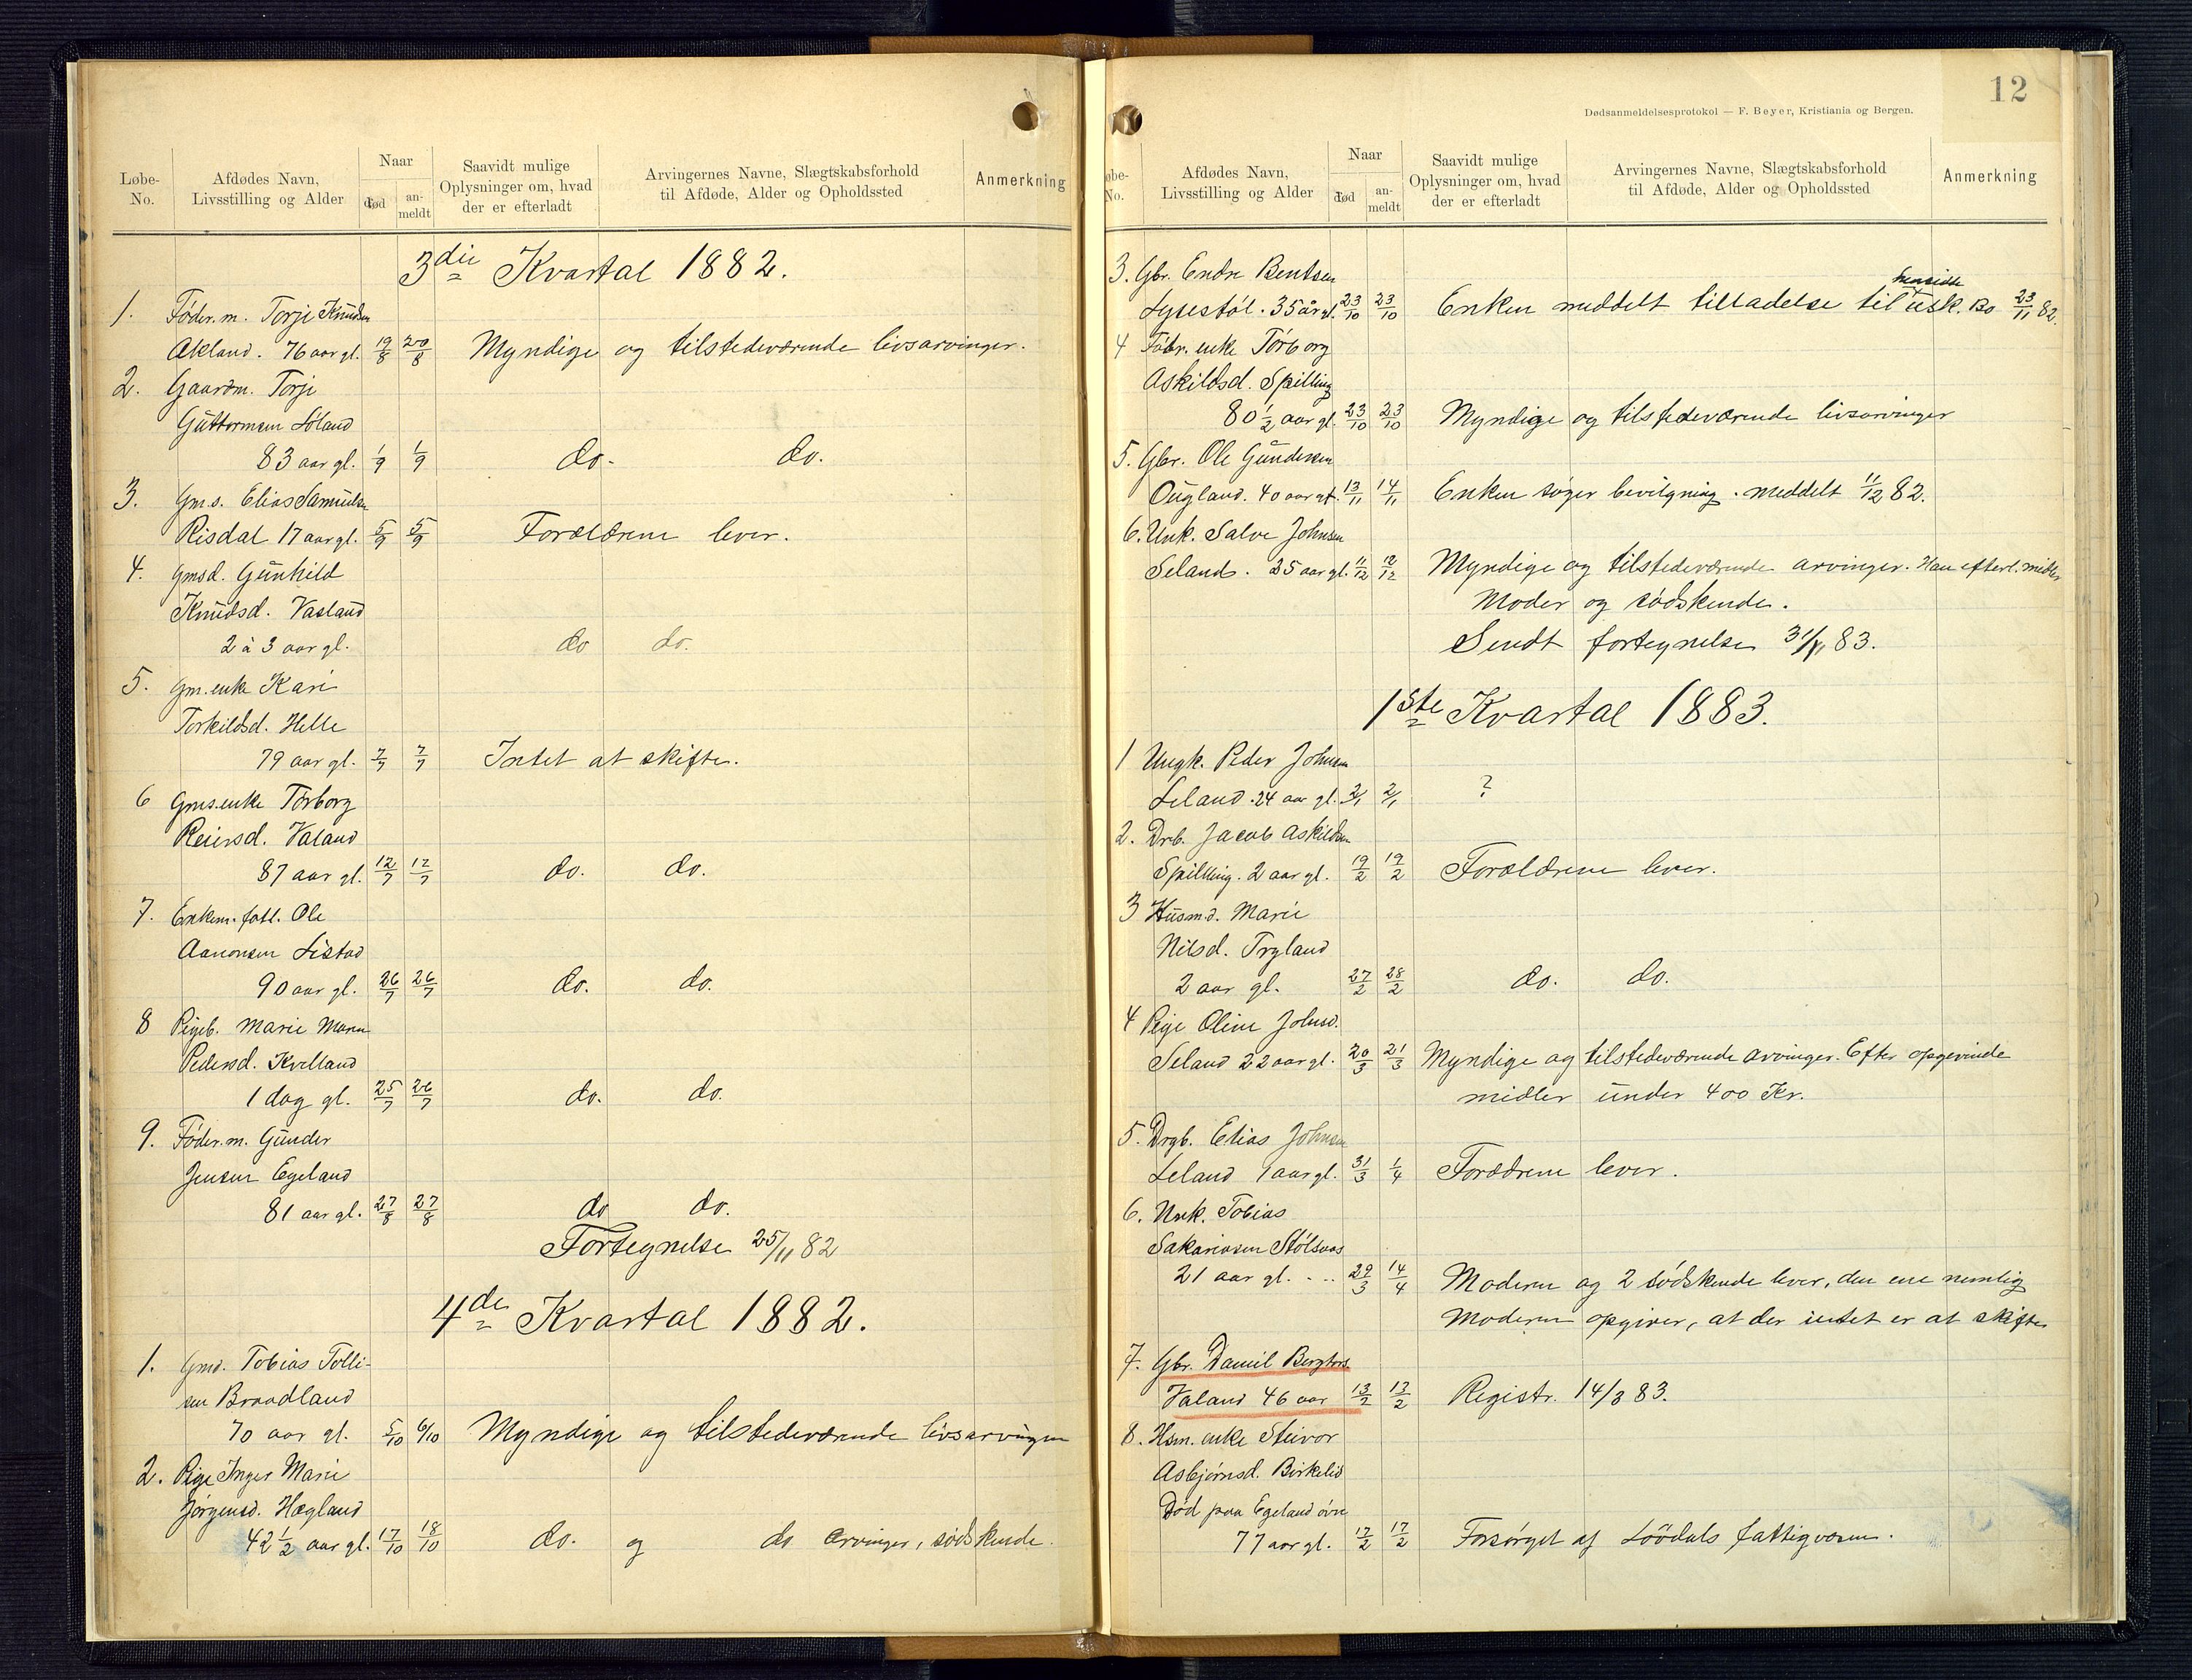 Løbe-No.
Afdødes Navn, Livsstilling og Alder
Naar
død
an-meldt
Saavidt mulige Oplysninger om, hvad der er efterladt
Arvingernes Navne, Slægtskabsforhold til Afdøde, Alder og Opholdssted
Anmerkning
3die Kvartal 1882.
1. Føder.m. Torje Knudsen
Akland. 76 aar gl. 19/8 20/8 Myndige og tilstedeværende livsarvinger.
2. Gaardm. Torje
Guttormsen Löland
83 aar gl. 1/9 1/9 do. do.
3. Gm.s. Elias Samuels.
Risdal 17 aar gl. 5/9 5/9 Forældrene lever.
4. Gmsd. Gunhild
Knudsd. Vasland
2 à 3 aar gl. do do.
5. Gm. enke Kari
Torkildsd. Helle
79 aar gl. 7/7 7/7 Intet at skifte.
6 Gms.enke Torborg
Reiersd. Valand
87 aar gl. 12/7 12/7 do. do.
7. Enkem. fatt. Ole
Aanonsen Listad
90 aar gl. 26/7 26/7 do. do.
8 Pigeb. Marie Maren
Pedersd. Kvelland
1 dag gl. 25/7 26/7 do. do.
9. Føder.m. Gunder
Jensen Egeland
81 aar gl. 27/8 27/8 do do.
Fortegnelse 25/11 82
4de Kvartal 1882.
1. Gmd. Tobias Tolli-
sen Braadland
70 aar gl. 5/10 6/10 Myndige og tilstedeværende livsarvinger
2. Pige Inger Marie
Jørgensd. Hægland
42 1/2 aar gl. 17/10 18/10 do. og do arvinger, södskende.
12
Dødsanmeldelsesprotokol — F. Beyer, Kristiania og Bergen.
øbe-No.
Afdødes Navn, Livsstilling og Alder
Naar
død
an-meldt
Saavidt mulige Oplysninger om, hvad der er efterladt
Arvingernes Navne, Slægtskabsforhold til Afdøde, Alder og Opholdssted
Anmerkning
3. Gbr. Endre Bentsen
Lysestøl. 35 år gl. 23/10 23/10 Enken meddelt tilladelse til usk. Bo 23/11 82.
4 Föbr. enke Törborg
Askildsd. Spilling
80 1/2 aar gl. 23/10 23/10 Myndige og tilstedeværende livsarvinger
5. Gbr. Ole Gundersen
Ougland. 40 aar gl. 13/11 14/11 Enken søger bevilgning. meddelt 11/12 82.
6. Unk. Salve Johnsen
Seland. 25 aar gl. 11/12 12/12 Myndige og tilstedeværende arvinger. Han efterl. midler
Moder og södskende.
Sendt fortegnelse 31/1 83.
1ste Kvartal 1883.
1 Ungk. Peder Johnsen
Leland. 24 aar gl. 2/1 2/1 ?
2. Drb. Jacob Askildsen
Spilling. 2 aar gl. 19/2 19/2 Forældrene lever.
3 Husm.d. Marie
Nilsd. Tryland
2 aar gl. 27/2 28/2 do. do.
4 Pige Oline Johnsd.
Seland 22 aar gl. 20/3 21/3 Myndige og tilstedeværende arvinger. Efter opgivende
midler under 400 Kr.
5. Drgb. Elias Johnsen
Leland 1 aar gl. 31/3 1/4 Forædrene lever.
6. Unk. Tobias
Sakariasen Stölsvas
21 aar gl. . .. 29/3 14/4 Moderen og 2 södskende lever, den ene nemlig
Moderen opgiver, at der intet er at skifte
7. Gbr. Daniel Bergtors.
Valand 46 aar 13/2 13/2 Registr. 14/3 83.
8. Hsm. enke Steivor
Asbjørnsd. Birkelid
Død paa Egeland övre
77 aar gl. 17/2 17/2 Forsørget af Löödals fattigvæsen.